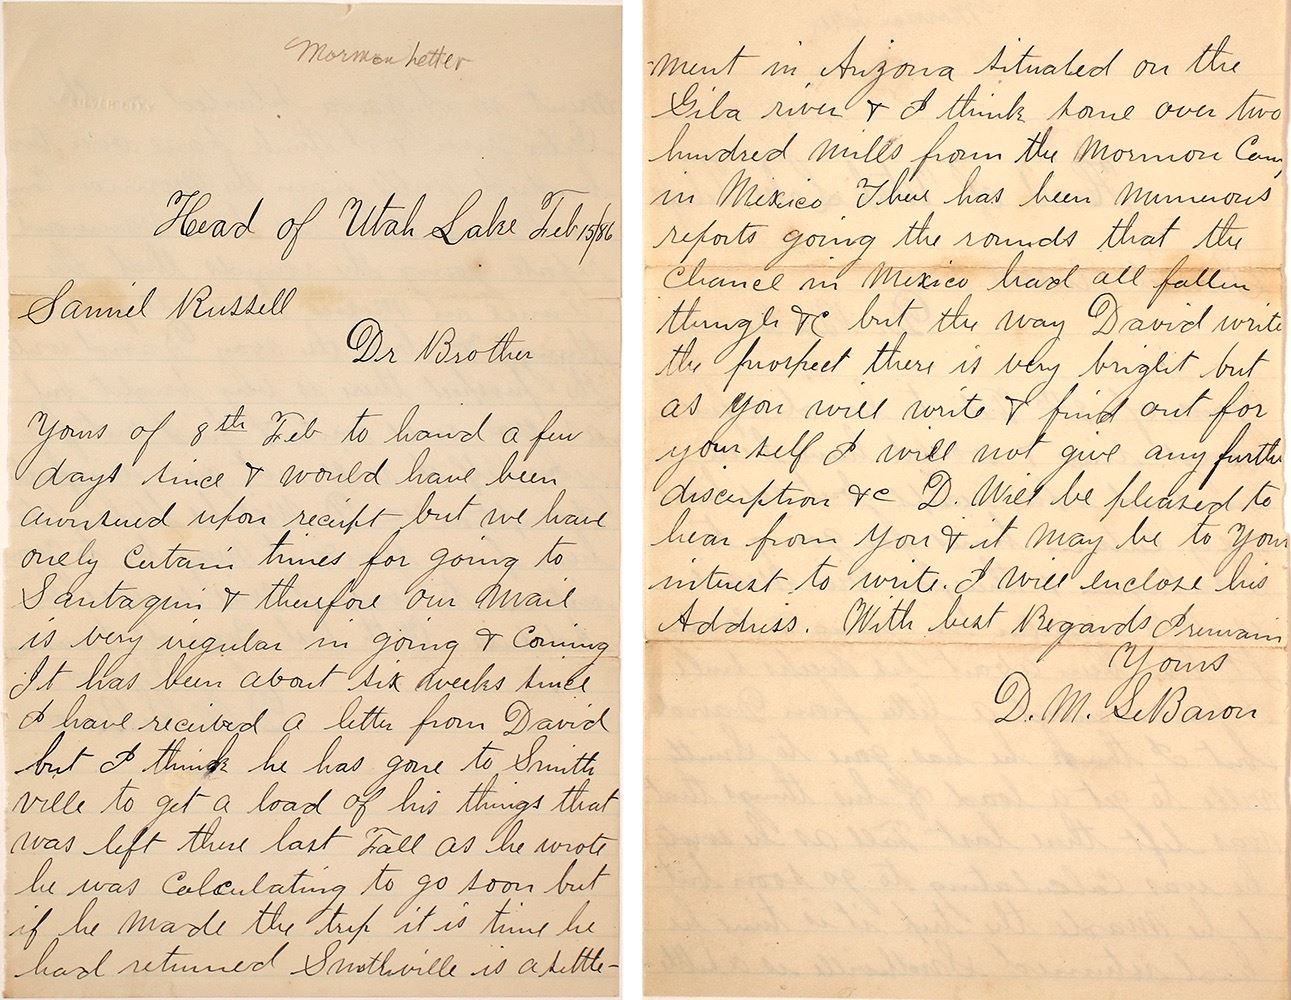 Mormon Letter
Head of Utah Lake Feb 15/86
Samuel Russell
Dr Brother
Yours of 8th Feb to hand a few
days since & would have been
awnsered upon receipt but we have
onely Certain times for going to
Santaquin & therefore our Mail
is very iregular in going & Coming
It has been about six weeks since
I have received a letter from David
but I think he has gone to Smith
ville to get a load of his things that
was left there last Fall as he wrote
he was Calculating to go soon but
if he Made the trip it is time he
had returned Smithville is a settle-
-ment in Arizona situated on the
Gila river & I think some over two
hundred Mills from the Mormon Camp
in Mexico There has been Numerous
reports going the rounds that the
Chance in Mexico had all fallen
through &C but the way David write
the prospect there is very bright but
as you will write & find out for
yourself I will not give any further
discription &c D. Will be pleased to
hear from You & it May be to Your
interest to write. I will enclose his
Address. With best Regards I remain
Yours
D. M. LeBaron